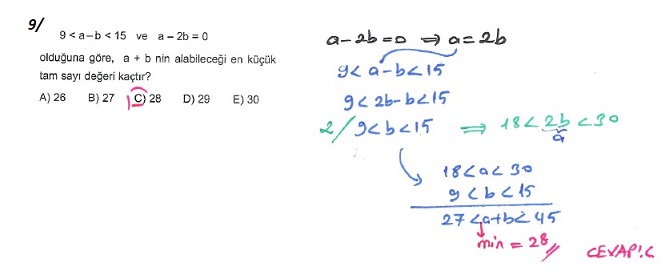 9/
9 < a–b < 15 ve a – 2b = 0
olduğuna göre, a + b nin alabileceği en küçük
tam sayı değeri kaçtır?
A) 26 B) 27 C) 28 D) 29 E) 30
a-2b=0 ⇒ a=2b
9<a-b<15
9<2b-b<15
2/ 9<b<15 ⇒ 18<2b<30
a
18<a<30
9<b<15
27<a+b<45
min = 28//
CEVAP:C